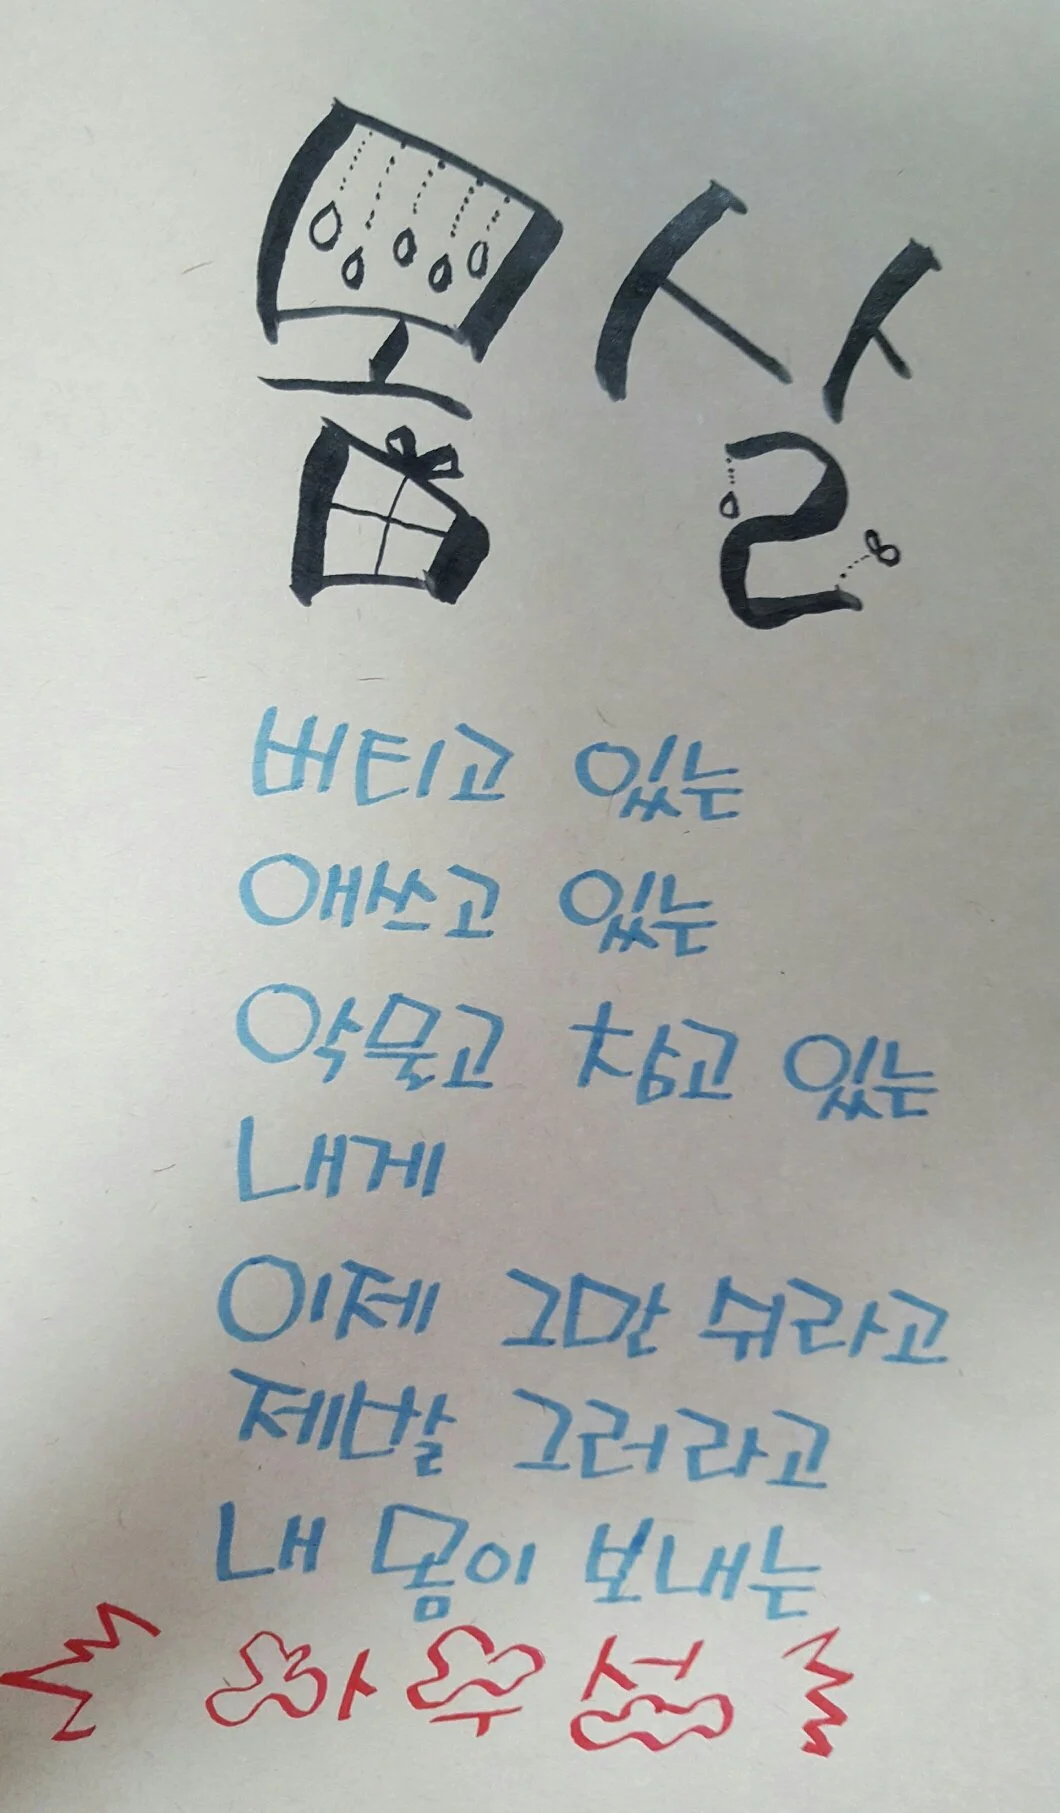 몸살
버티고 있는
애쓰고 있는
악물고 참고 있는
내게
이제 그만 쉬라고
제발 그러라고
내 몸이 보내는
하우성